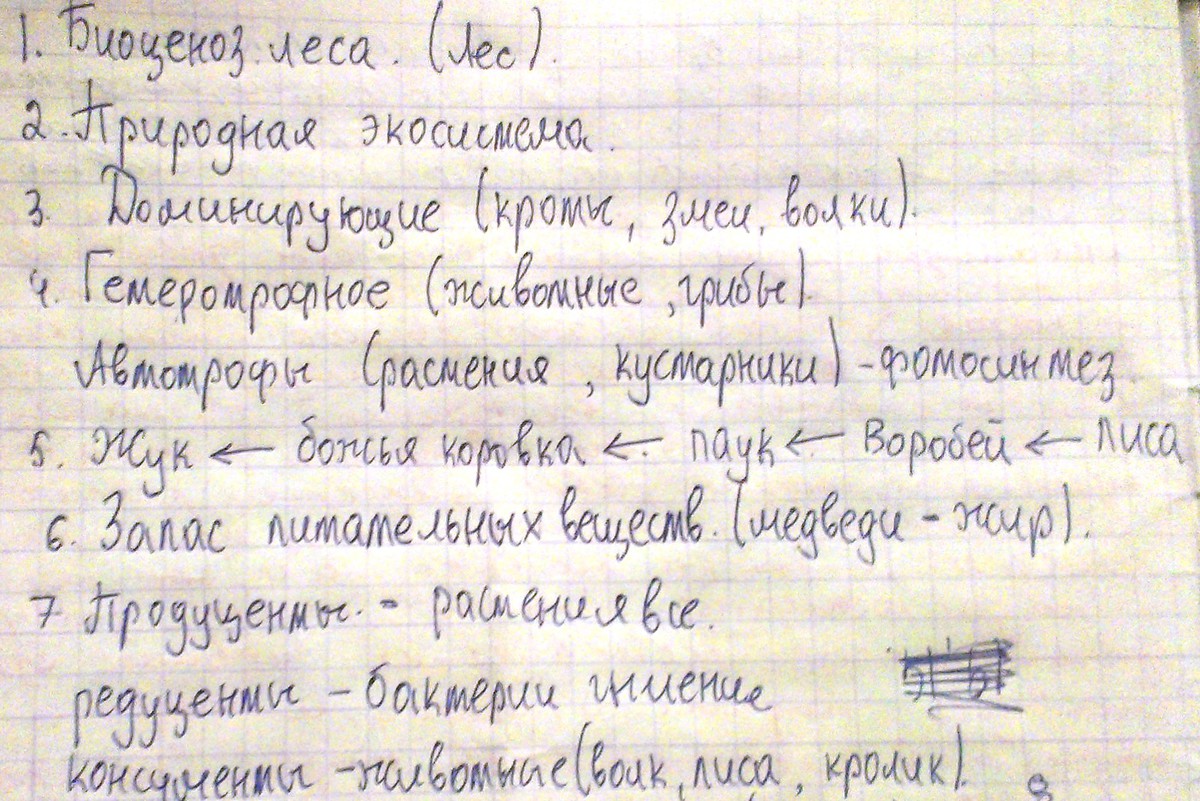 1. Биоценоз леса. (Лес).
2. Природная экосистема.
3. Доминирующие (кроты, змеи, волки).
4. Гетеротрофное (животные, грибы).
Автотрофы (растения, кустарники) - фотосинтез.
5. Жук ← божья коровка ← паук ← Воробей ← лиса
6. Запас питательных веществ. (медведи - жир).
7 Продуценты. - растения все.
редуценты - бактерии гниение
консументы - животные (волк, лиса, кролик).